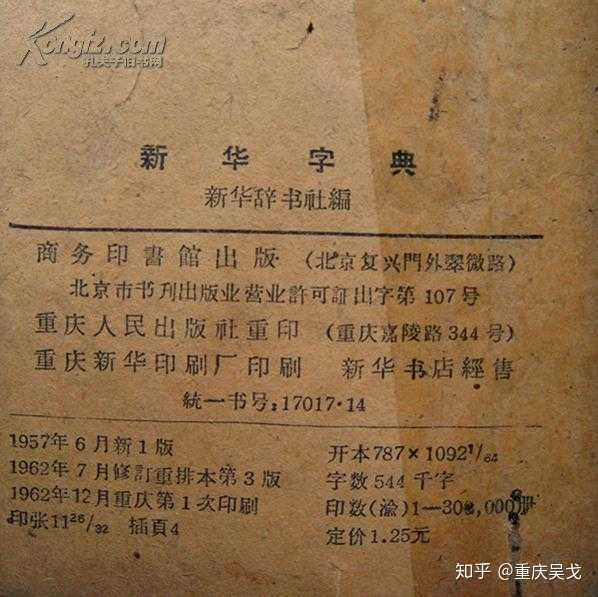 Kongfz.com
孔夫子旧书网
新华字典
新华辞书社編
商务印書館出版 (北京复兴門外翠微路)
北京市书刊出版业营业許可証出字第107号
重庆人民出版社重印 (重庆嘉陵路344号)
重庆新华印刷厂印刷 新华书店經售
統一书号:17017·14
1957年6月新1版
1962年7月修訂重排本第3版
1962年12月重庆第1次印刷
印张11 26/32 插頁4
开本787×1092 1/64
字数544千字
印数(渝)1—300,000册
定价1.25元
知乎 @重庆吴戈